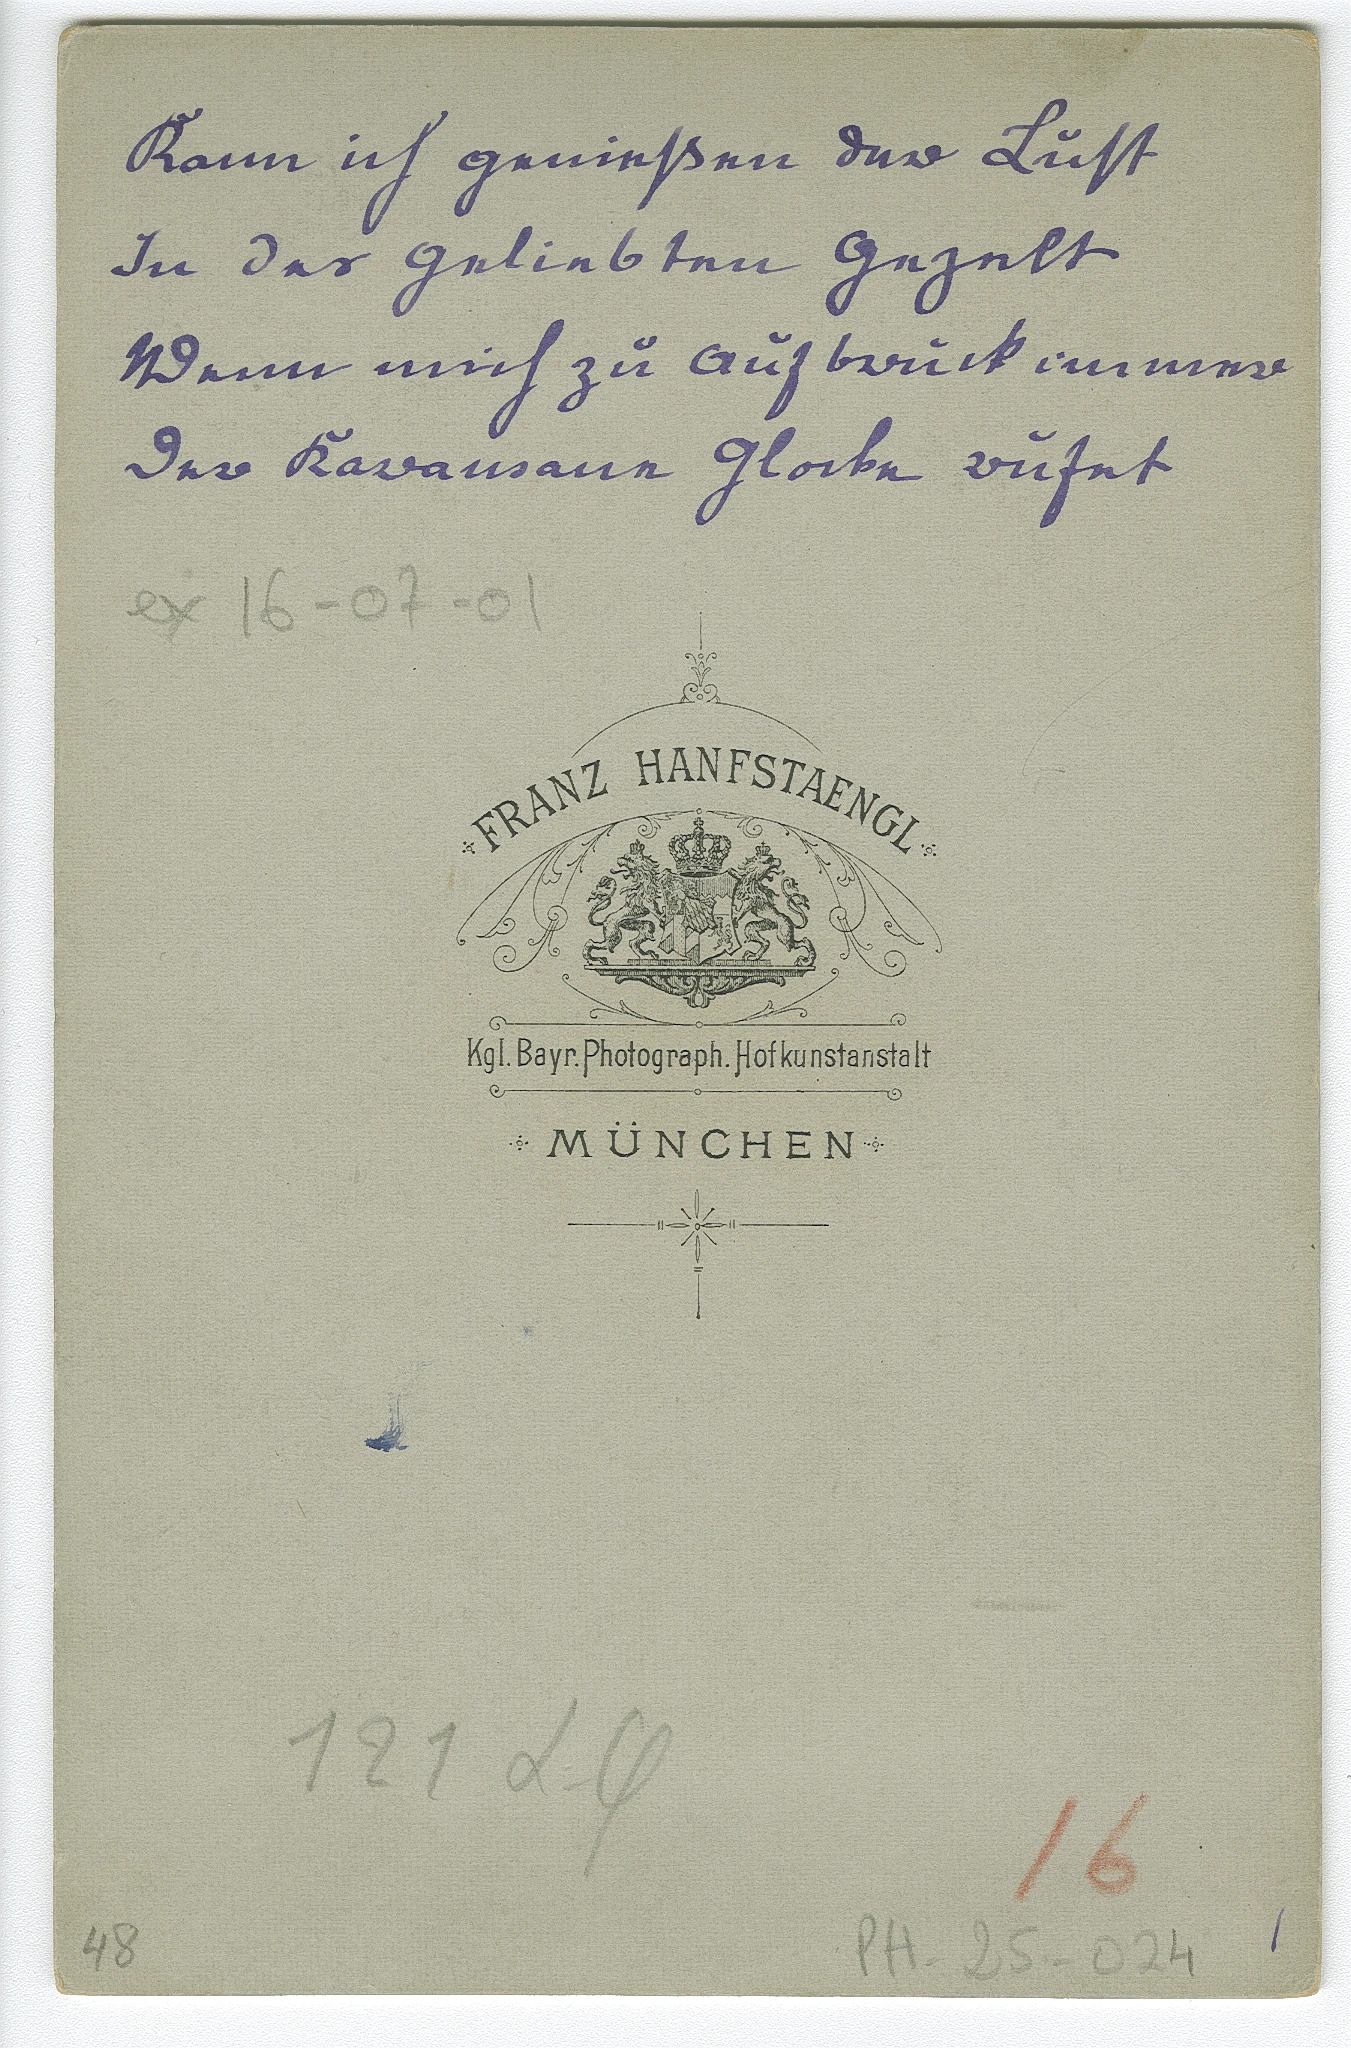 Kann ich genießen der Lust
In der Geliebten Gezelt
Wenn mich zu Aufbruck immer
Der Karawsane Glocke rufet
ex 16-07-01
FRANZ HANFSTAENGL
Kgl. Bayr. Photograph. Hofkunstanstalt
MÜNCHEN
121
16
48
PH-25-024